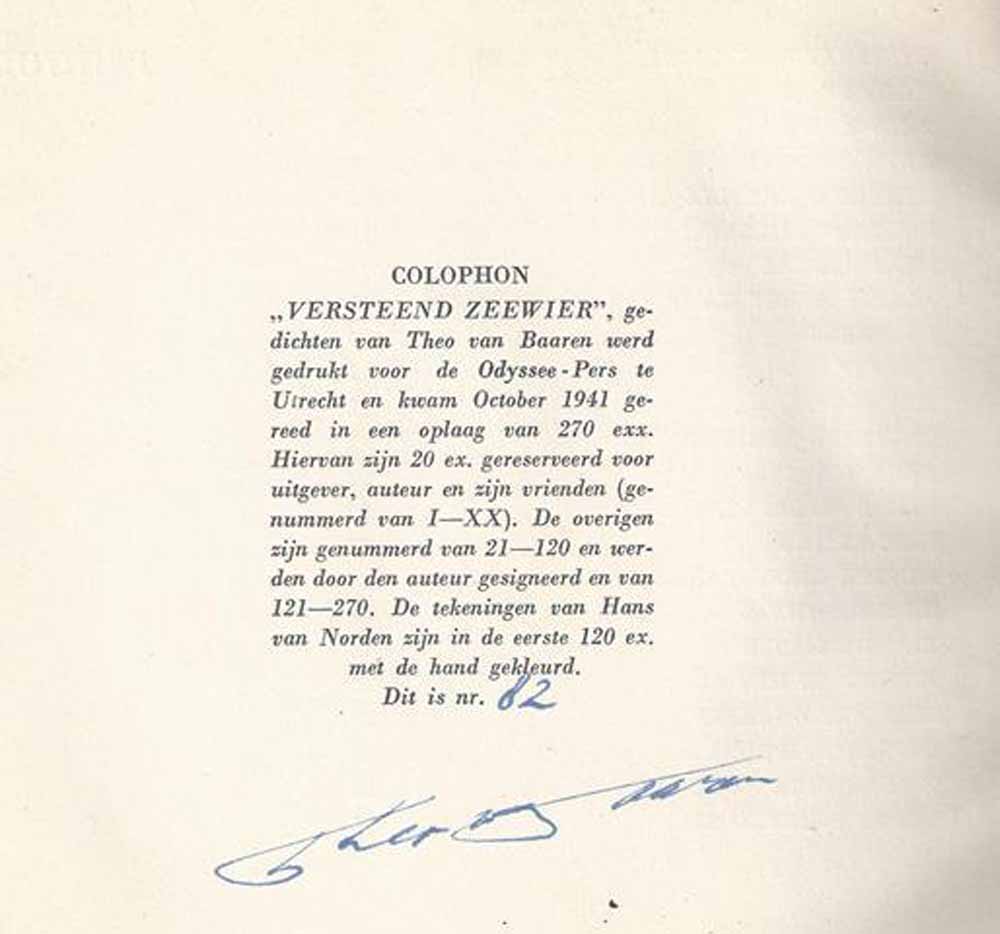 COLOPHON
„VERSTEEND ZEEWIER”, ge-
dichten van Theo van Baaren werd
gedrukt voor de Odyssee-Pers te
Utrecht en kwam October 1941 ge-
reed in een oplaag van 270 exx.
Hiervan zijn 20 ex. gereserveerd voor
uitgever, auteur en zijn vrienden (ge-
nummerd van I—XX). De overigen
zijn genummerd van 21—120 en wer-
den door den auteur gesigneerd en van
121—270. De tekeningen van Hans
van Norden zijn in de eerste 120 ex.
met de hand gekleurd.
Dit is nr. 82
Theo v Baaren